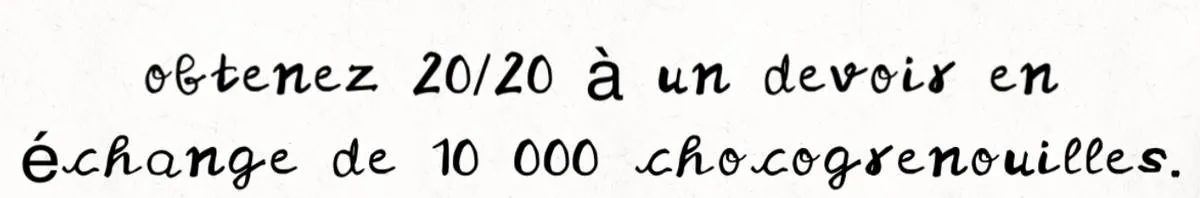 obtenez 20/20 à un devoir en
échange de 10 000 chocogrenouilles.